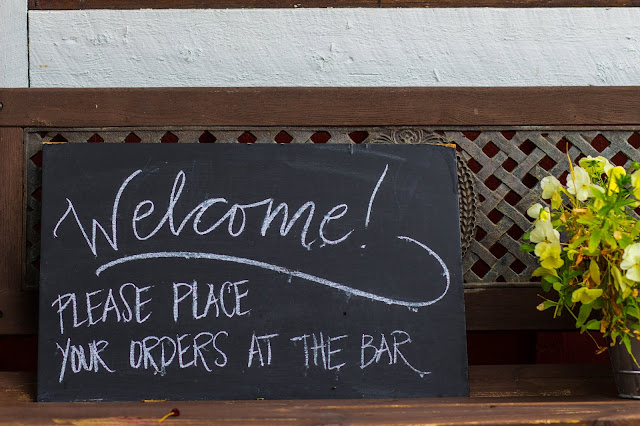 Welcome!
PLEASE PLACE
YOUR ORDERS AT THE BAR